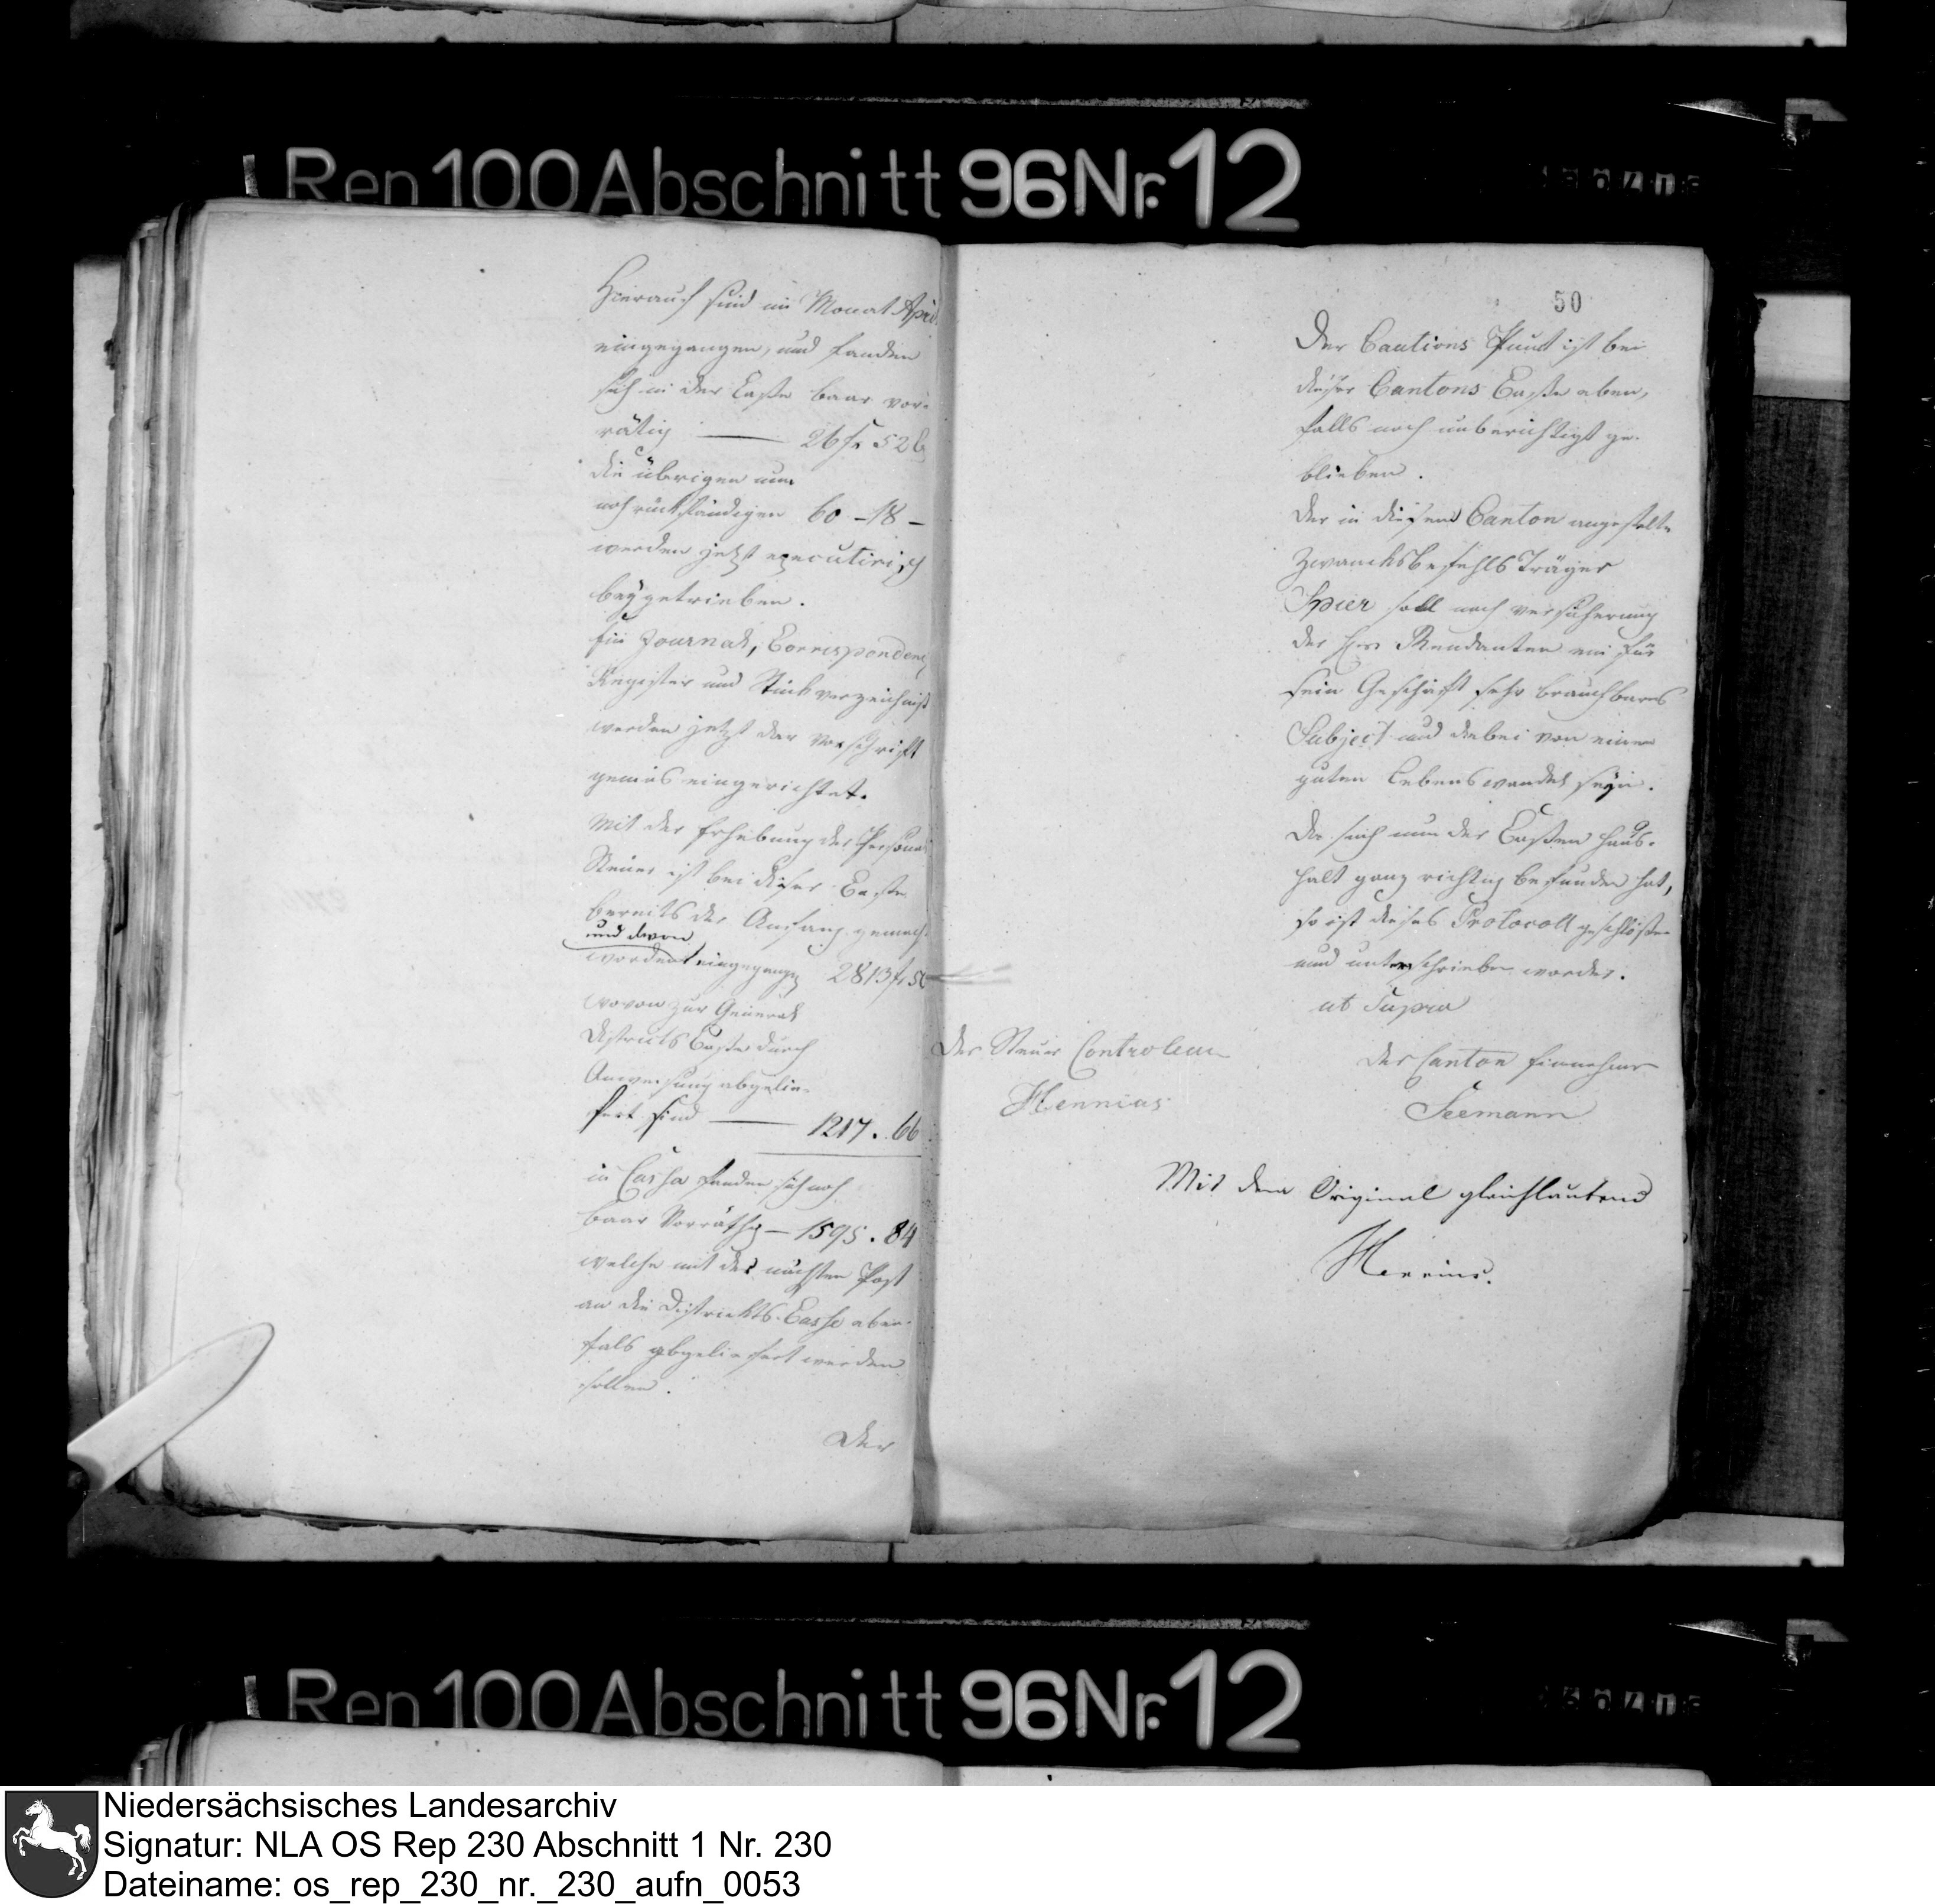 Rep 100 Abschnitt 96 Nr. 12
Hierauf sind im Monat April
eingegangen, und fanden
sich in der Casse baar vor-
rätig — 26 fr 52
die übrigen nun
noch rückständigen 60 - 18 -
werden jetzt executivisch
beygetrieben.
Journal, Correspondenz
Register und Stückverzeichniß
werden jetzt der Vorschrift
gemäs eingerichtet.
Mit der Erhebung der Personal
Steuer ist bei dieser Casse
bereits der Anfang gemacht
und davon
worden eingegangen 2813 fr 50
wovon zur General
Districts Casse durch
Anweisung abgelie-
fert sind — 1217. 66
in Cassa fanden sich noch
baar Vorräthig — 1595. 84
welche mit der nächsten Post
an die Districkts-Casse eben-
fals abgeliefert werden
sollen.
Der
50
Der Cautions Punct ist bei
dieser Cantons Casse eben,
falls noch unberichtigt ge-
blieben.
Der in diesem Canton angestelte
Zwancksbefehls Träger
Spier soll nach Versicherung
des Rendanten ein für
sein Geschäft sehr brauchbares
Subject und dabei von einem
guten Lebenswandel seyn.
Da sich nun der Cassen Haus-
halt ganz richtig befunden hat,
so ist dieses Protocoll geschlossen
und unterschrieben worden.
ut Supra
Der Steuer Controleur
Hennius
Der Canton Einnehmer
Seemann
Mit dem Original gleichlautend
Hennius.
Rep 100 Abschnitt 96 Nr. 12
Niedersächsisches Landesarchiv
Signatur: NLA OS Rep 230 Abschnitt 1 Nr. 230
Dateiname: os_rep_230_nr._230_aufn_0053